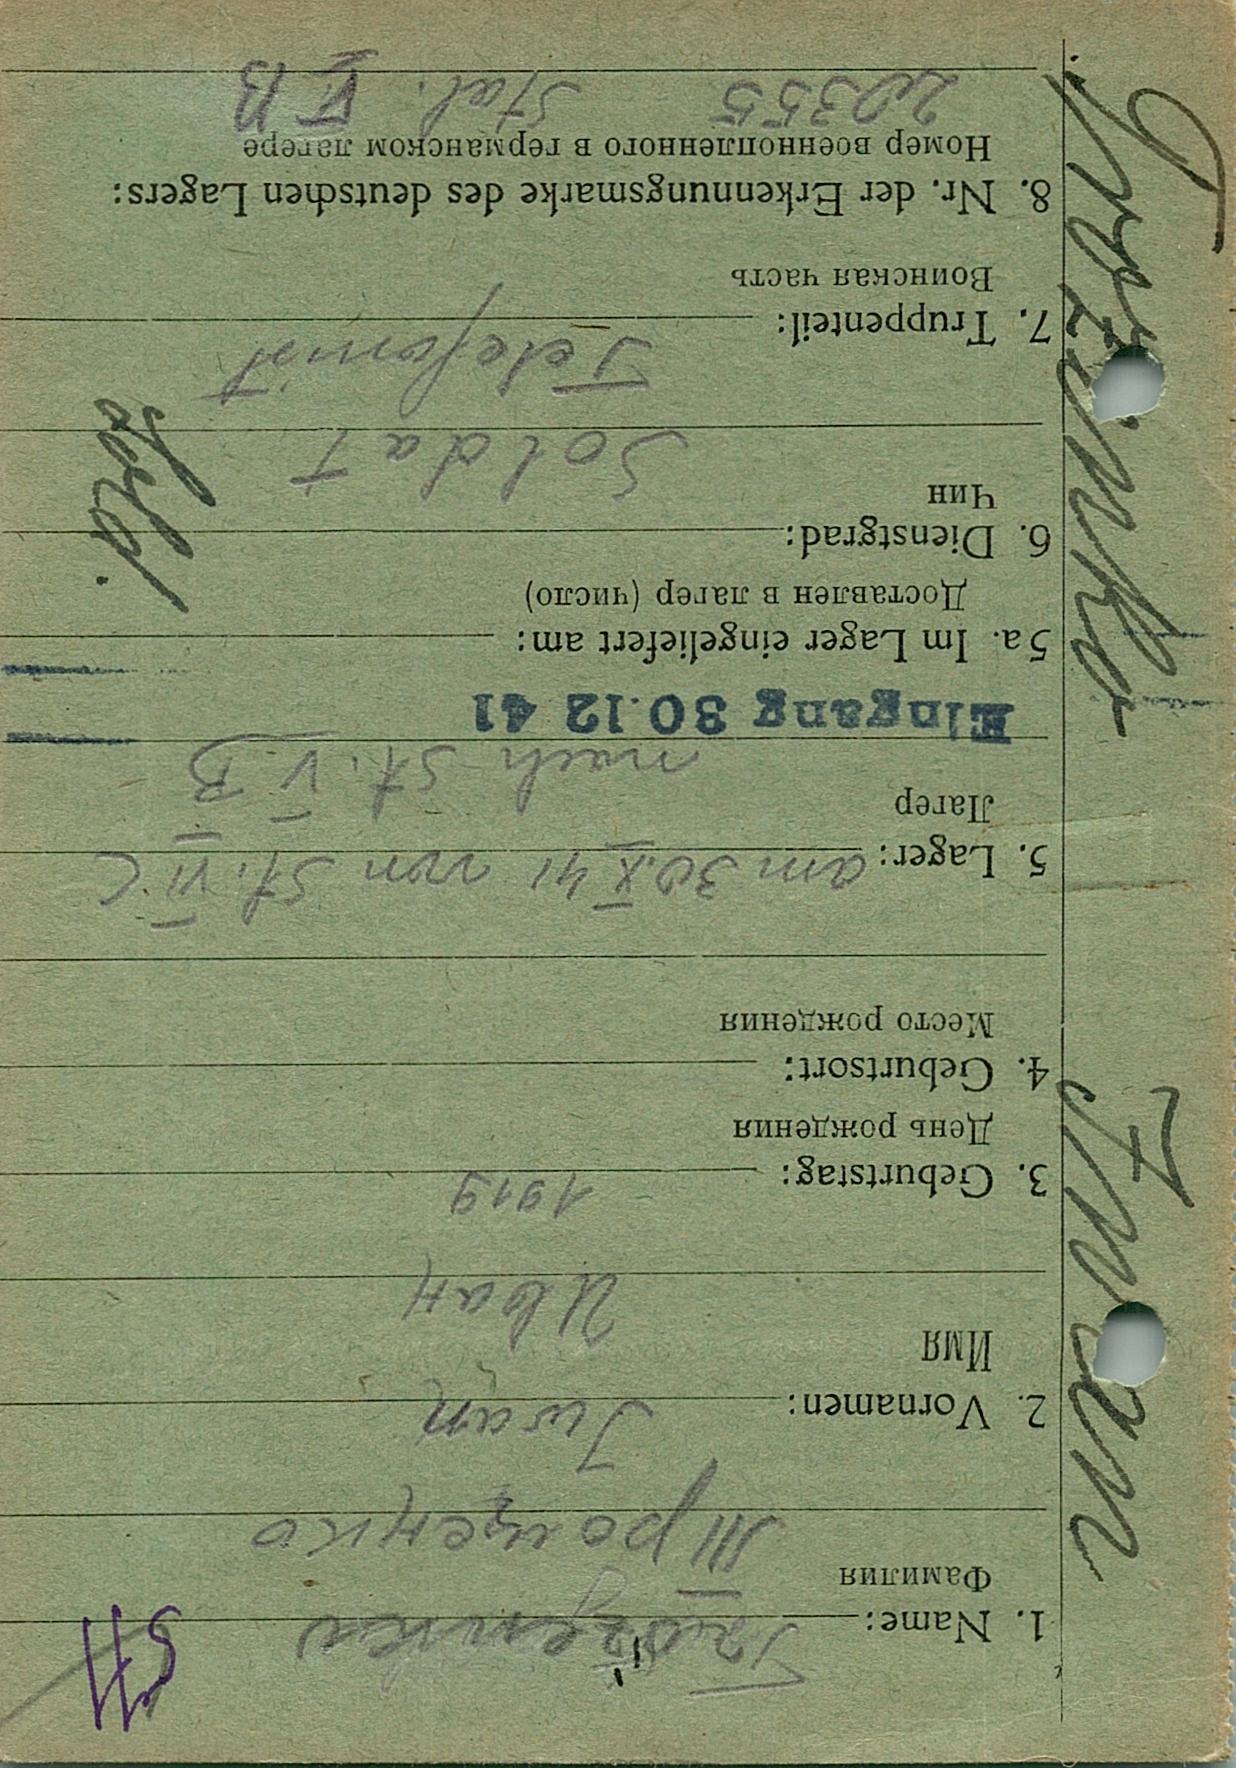 Iwan
1. Name:
Фамилия
Троценко
2. Vornamen: Iwan
Имя
Иван
3. Geburtstag: 1919
День рождения
4. Geburtsort:
Место рождения
5. Lager: am 30.X 41 von St. VI C
Лагер
nach St. V. B
Eingang 30.12 41
5a. Im Lager eingeliefert am:
Доставлен в лагер (число)
6. Dienstgrad:
Чин
Soldat
Sold.
7. Truppenteil: Telefonist
Воинская часть
8. Nr. der Erkennungsmarke des deutschen Lagers:
Номер военнопленного в германском лагере
20355 Stal. V. B